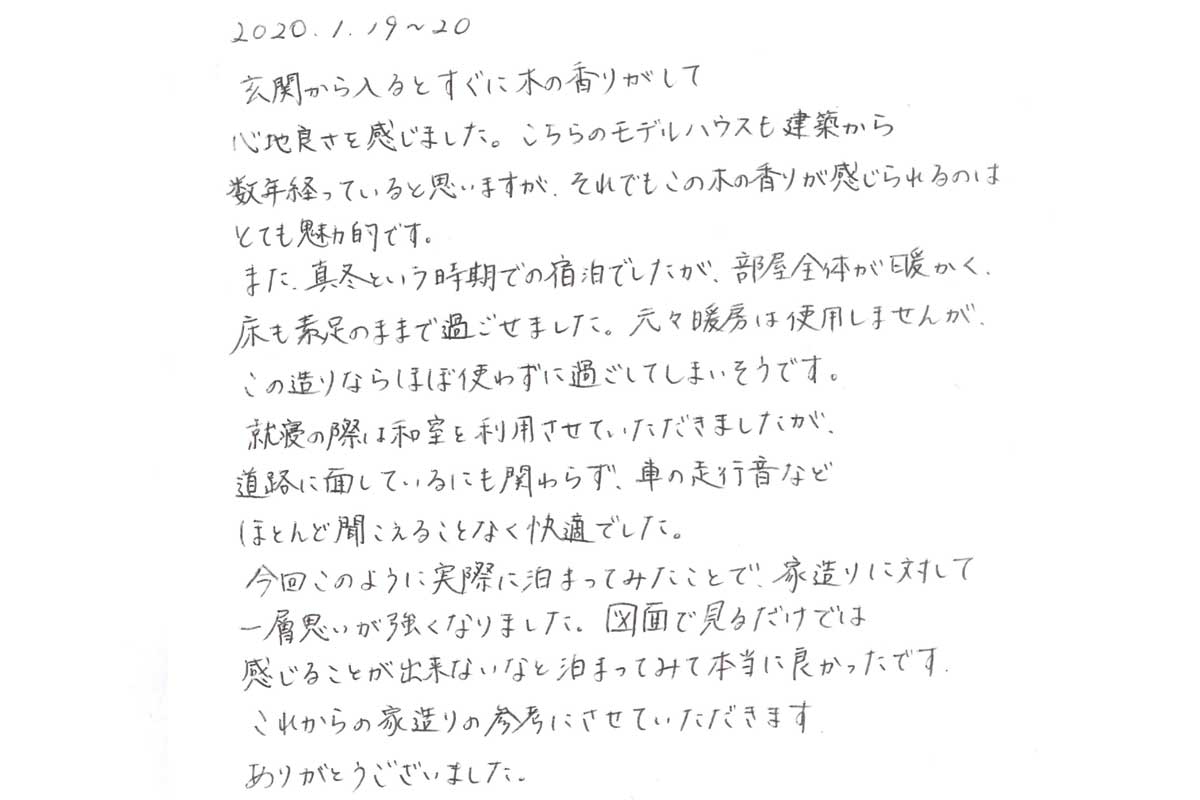 2020.1.19~20
玄関から入るとすぐに木の香りがして
心地良さを感じました。こちらのモデルハウスも建築から
数年経っていると思いますが、それでもこの木の香りが感じられるのは
とても魅力的です。
また、真冬という時期での宿泊でしたが、部屋全体が暖かく、
床も素足のままで過ごせました。元々暖房は使用しませんが、
この造りならほぼ使わずに過ごしてしまいそうです。
就寝の際は和室を利用させていただきましたが、
道路に面しているにも関わらず、車の走行音など
ほとんど聞こえることなく快適でした。
今回このように実際に泊まってみたことで、家造りに対して
一層思いが強くなりました。図面で見るだけでは
感じることが出来ないなと泊まってみて本当に良かったです.
これからの家造りの参考にさせていただきます
ありがとうございました。